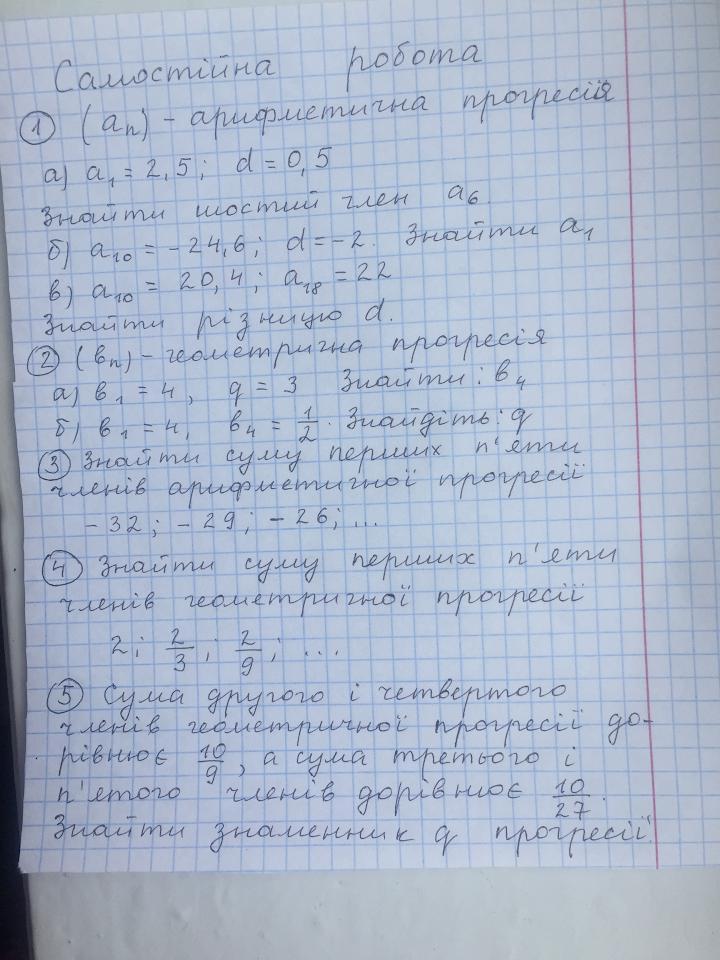 Самостійна робота
① (aₙ) - арифметична прогресія
а) a₁ = 2,5; d = 0,5
Знайти шостий член a₆.
б) a₁₀ = -24,6; d = -2. Знайти a₁
в) a₁₀ = 20,4; a₁₈ = 22
Знайти різницю d.
② (вₙ) - геометрична прогресія
а) в₁ = 4, q = 3 Знайти: в₄
б) в₁ = 4, в₄ = 1/2. Знайдіть: q
③ Знайти суму перших п'яти
членів арифметичної прогресії
-32; -29; -26; ...
④ Знайти суму перших п'яти
членів геометричної прогресії
2; 2/3; 2/9; ...
⑤ Сума другого і четвертого
членів геометричної прогресії до-
рівнює 10/9, а сума третього і
п'ятого членів дорівнює 10/27.
Знайти знаменник q прогресії.